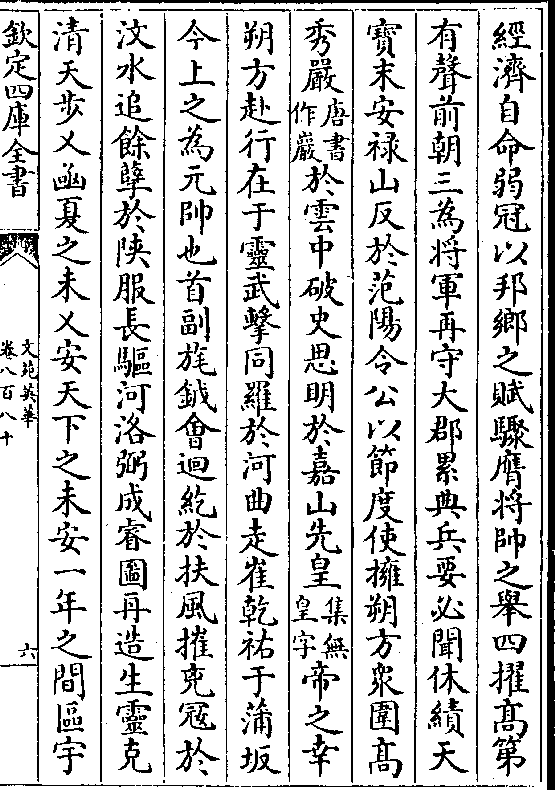 經濟自命弱冠以邦鄉之賦驟膺將帥之舉四擢髙第
有聲前朝三為將軍再守大郡累典兵要必聞休績天
寶末安禄山反於范陽令公以節度使擁朔方衆圍髙
秀嚴唐書作巖於雲中破史思明於嘉山先皇集無皇字帝之幸
朔方赴行在于靈武擊同羅於河曲走崔乾祐于蒲坂
今上之為元帥也首副旄鉞會迴紇於扶風摧兇冦於
汶水追餘孽於陕服長驅河洛弼成睿圖再造生靈克
清天步乂凾夏之未乂安天下之未安一年之間區宇
欽定四庫全書
文苑英華
卷八百八十
六